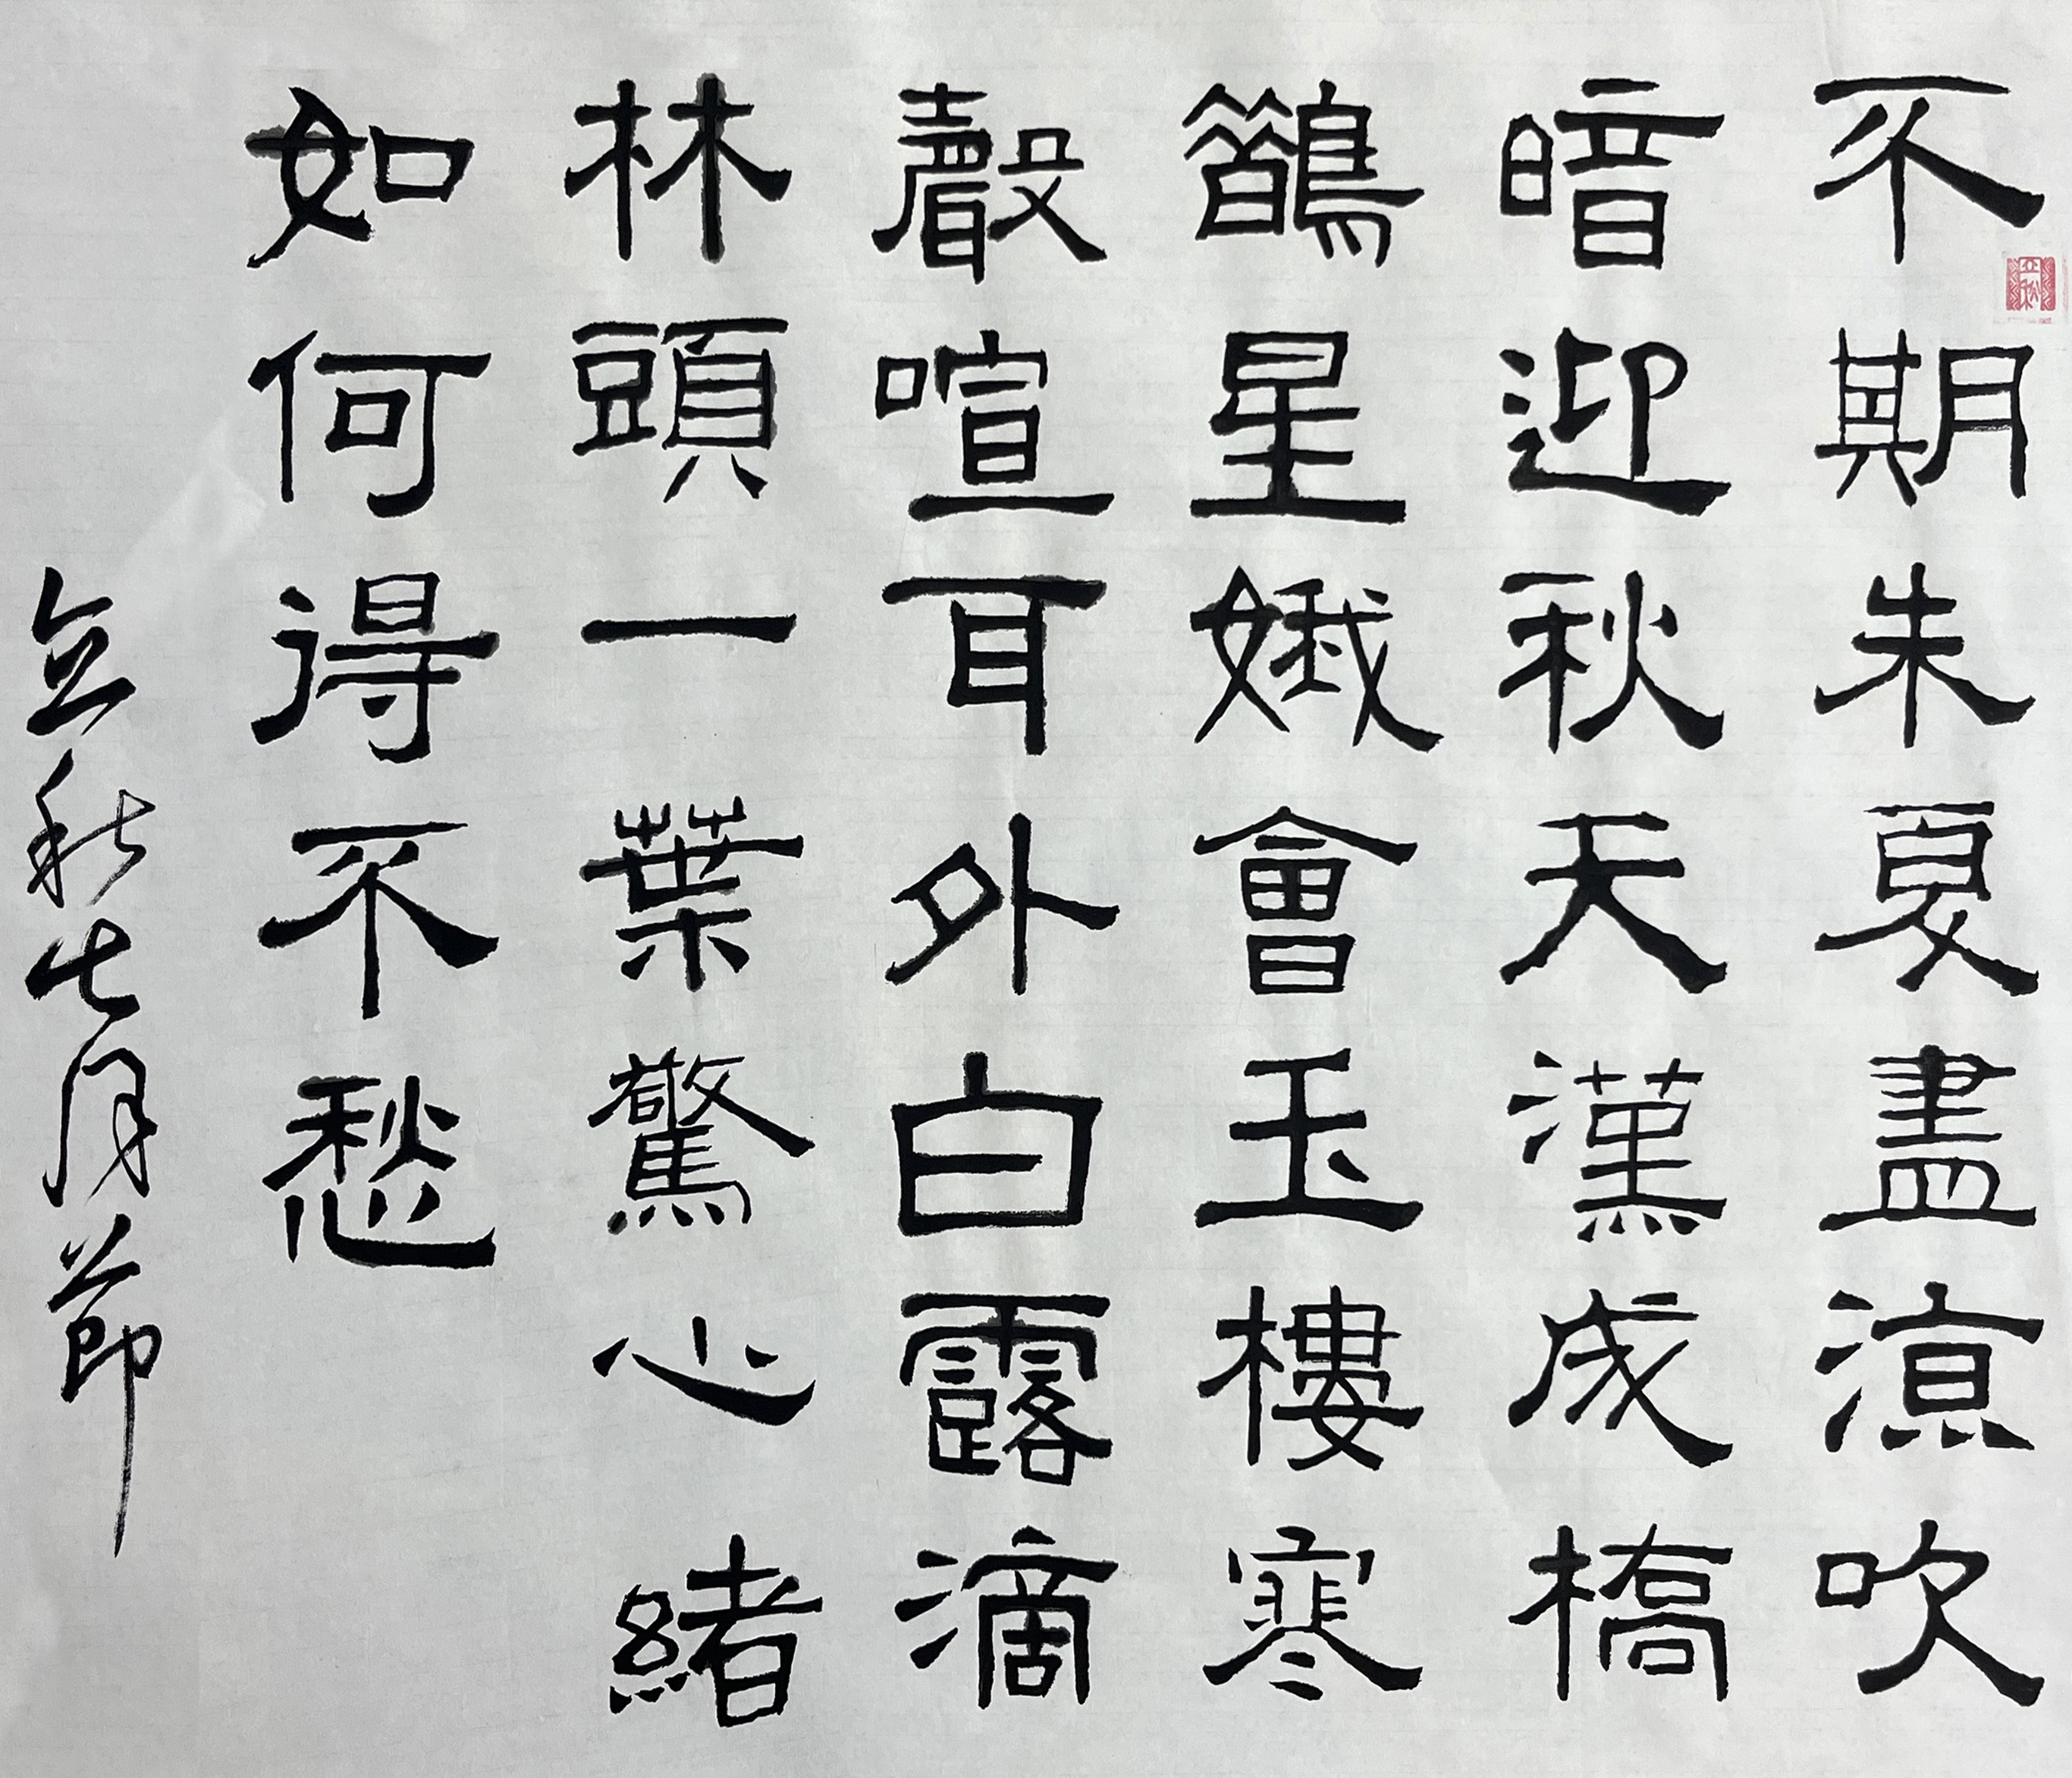 不期朱夏盡涼吹
暗迎秋天漢成橋
鵲星娥會玉樓寒
聲喧耳外白露滴
林頭一葉驚心緒
如何得不愁
立秋七月節